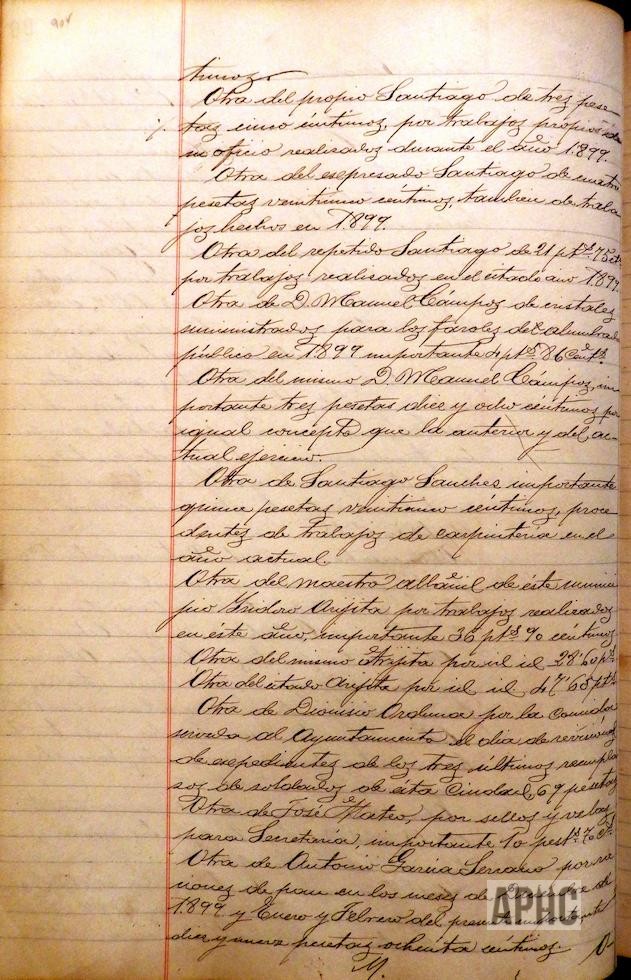 timos.
Otra del propio Santiago de tres pese-
tas cinco céntimos, por trabajos propios de
su oficio realizados durante el año 1899.
Otra del espresado Santiago de cuatro
pesetas veintiuno céntimos, tambien de traba
jos hechos en 1899.
Otra del repetido Santiago de 21 pts 75 cts
por trabajos realizados en el citado año 1899.
Otra de D. Manuel Cámpos de cristales
suministrados para los faroles del alumbrado
público en 1899 importante 4 pts 86 cents.
Otra del mismo D. Manuel Cámpos, im
portante tres pesetas diez y ocho céntimos por
igual concepto que la anterior y del ac-
tual ejercicio.
Otra de Santiago Sanches importante
quince pesetas veintiuno céntimos, proce
dentes de trabajos de carpintería en el
año actual.
Otra del maestro albañil de este munici
pio Ysidoro Arijita por trabajos realizados
en éste año, importante 36 pts céntimos
Otra del mismo Arijita por id id 28'60 pts
Otra del citado Arijita por id. id. 47'65 pts
Otra de Dionisio Orduna por la comida
servida al Ayuntamiento el dia de revisiones
de espedientes de los tres últimos reempla
zos de soldados de ésta Ciudad, 69 pesetas
Otra de José Mateo, por sellos y
para Secretaría, importante 10 pests 70 cts
Otra de Antonio Garcia Serrano por ra
ciones de pan en los meses de de
1899 y Enero y Febrero del presente importante
diez y nueve pesetas ochenta céntimos.
APHC